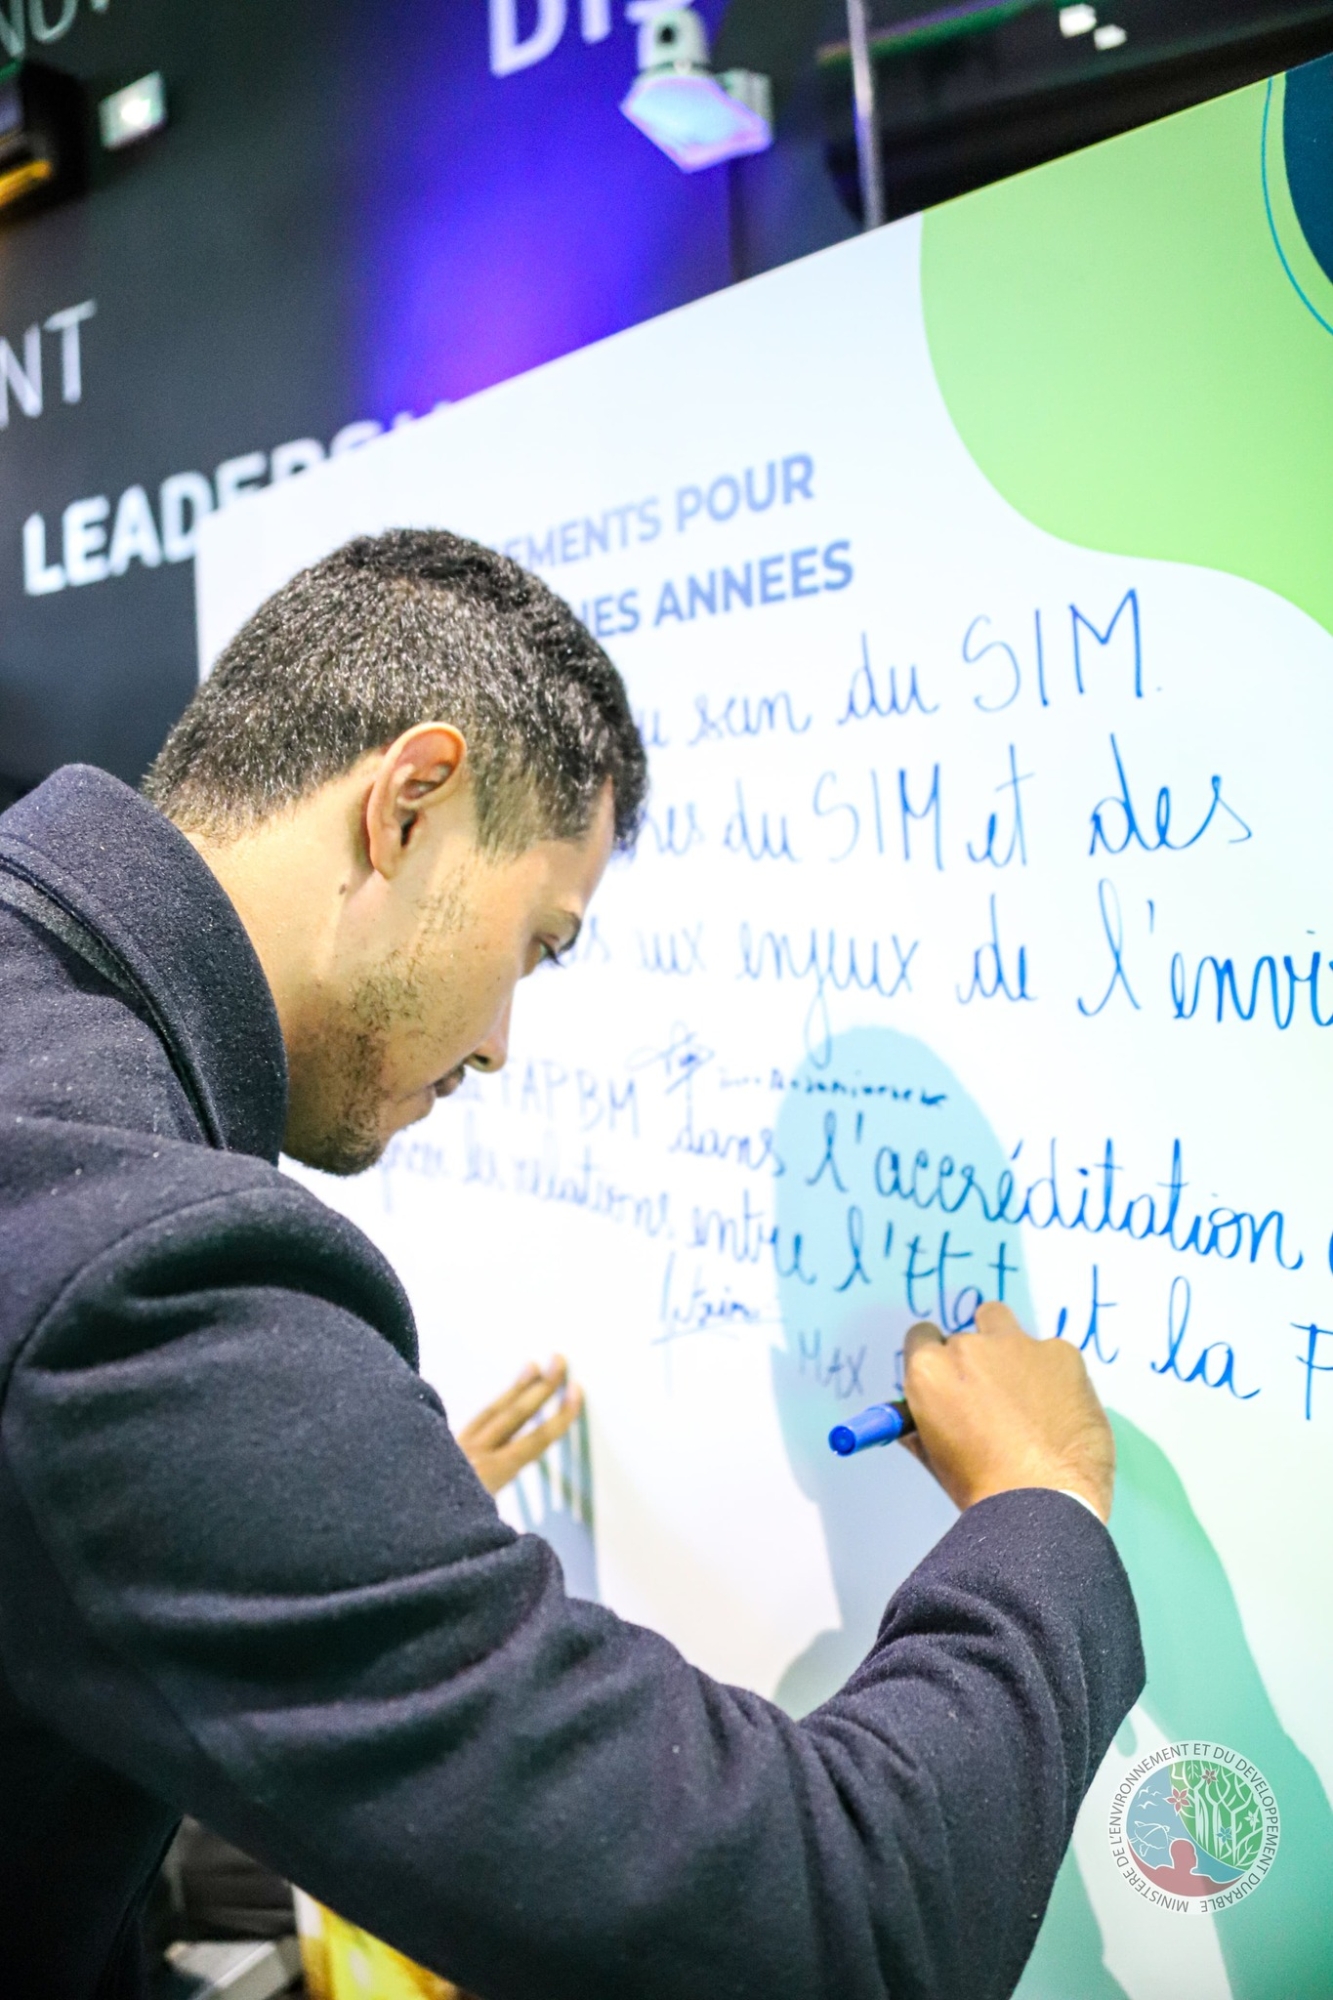 NT
LEADERSH
EMENTS POUR
NES ANNEES
u sein du SIM.
res du SIM et des
s aux enjeux de l'envi
FAPBM
dans l'accréditation
les relations entre l'Etat et la P
MAX
MINISTERE DE L'ENVIRONNEMENT ET DU DEVELOPPEMENT DURABLE